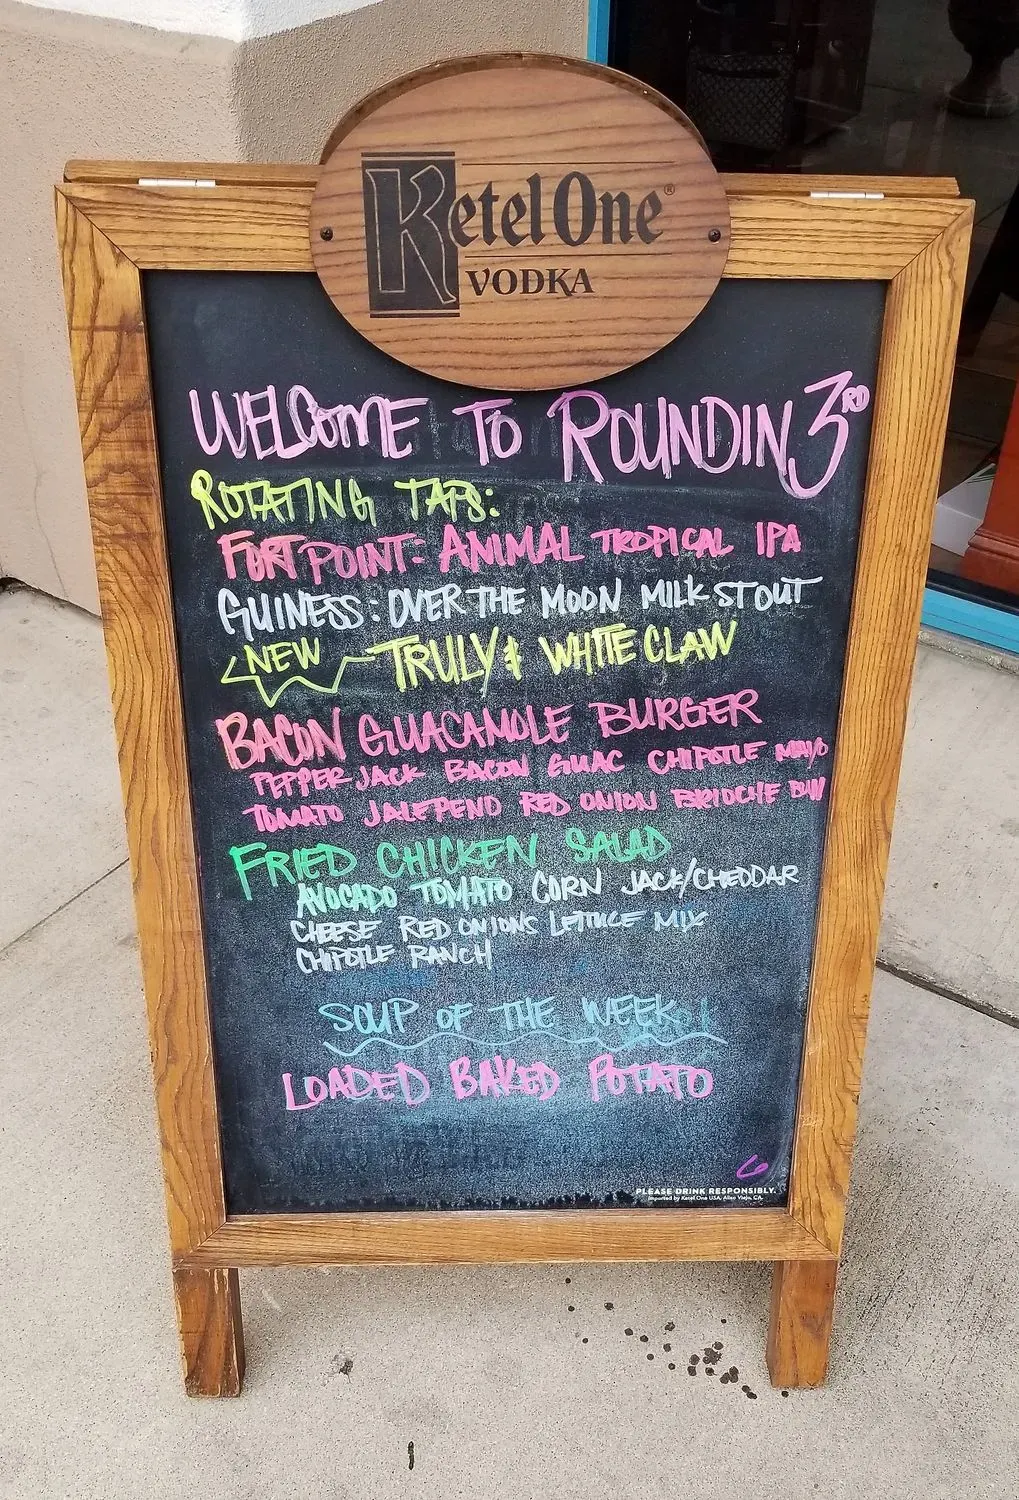 Ketel One®
VODKA
WELCOME TO ROUNDIN 3RD
ROTATING TAPS:
FORT POINT: ANIMAL TROPICAL IPA
GUINESS: OVER THE MOON MILK STOUT
NEW TRULY & WHITE CLAW
BACON GUACAMOLE BURGER
PEPPER JACK BACON GUAC CHIPOTLE MAYO
TOMATO JALEPENO RED ONION BRIOCHE BUN
FRIED CHICKEN SALAD
AVOCADO TOMATO CORN JACK/CHEDDAR
CHEESE RED ONIONS LETTUCE MIX
CHIPOTLE RANCH
SOUP OF THE WEEK
LOADED BAKED POTATO
PLEASE DRINK RESPONSIBLY.
Imported by Ketel One USA, Aliso Viejo, CA.